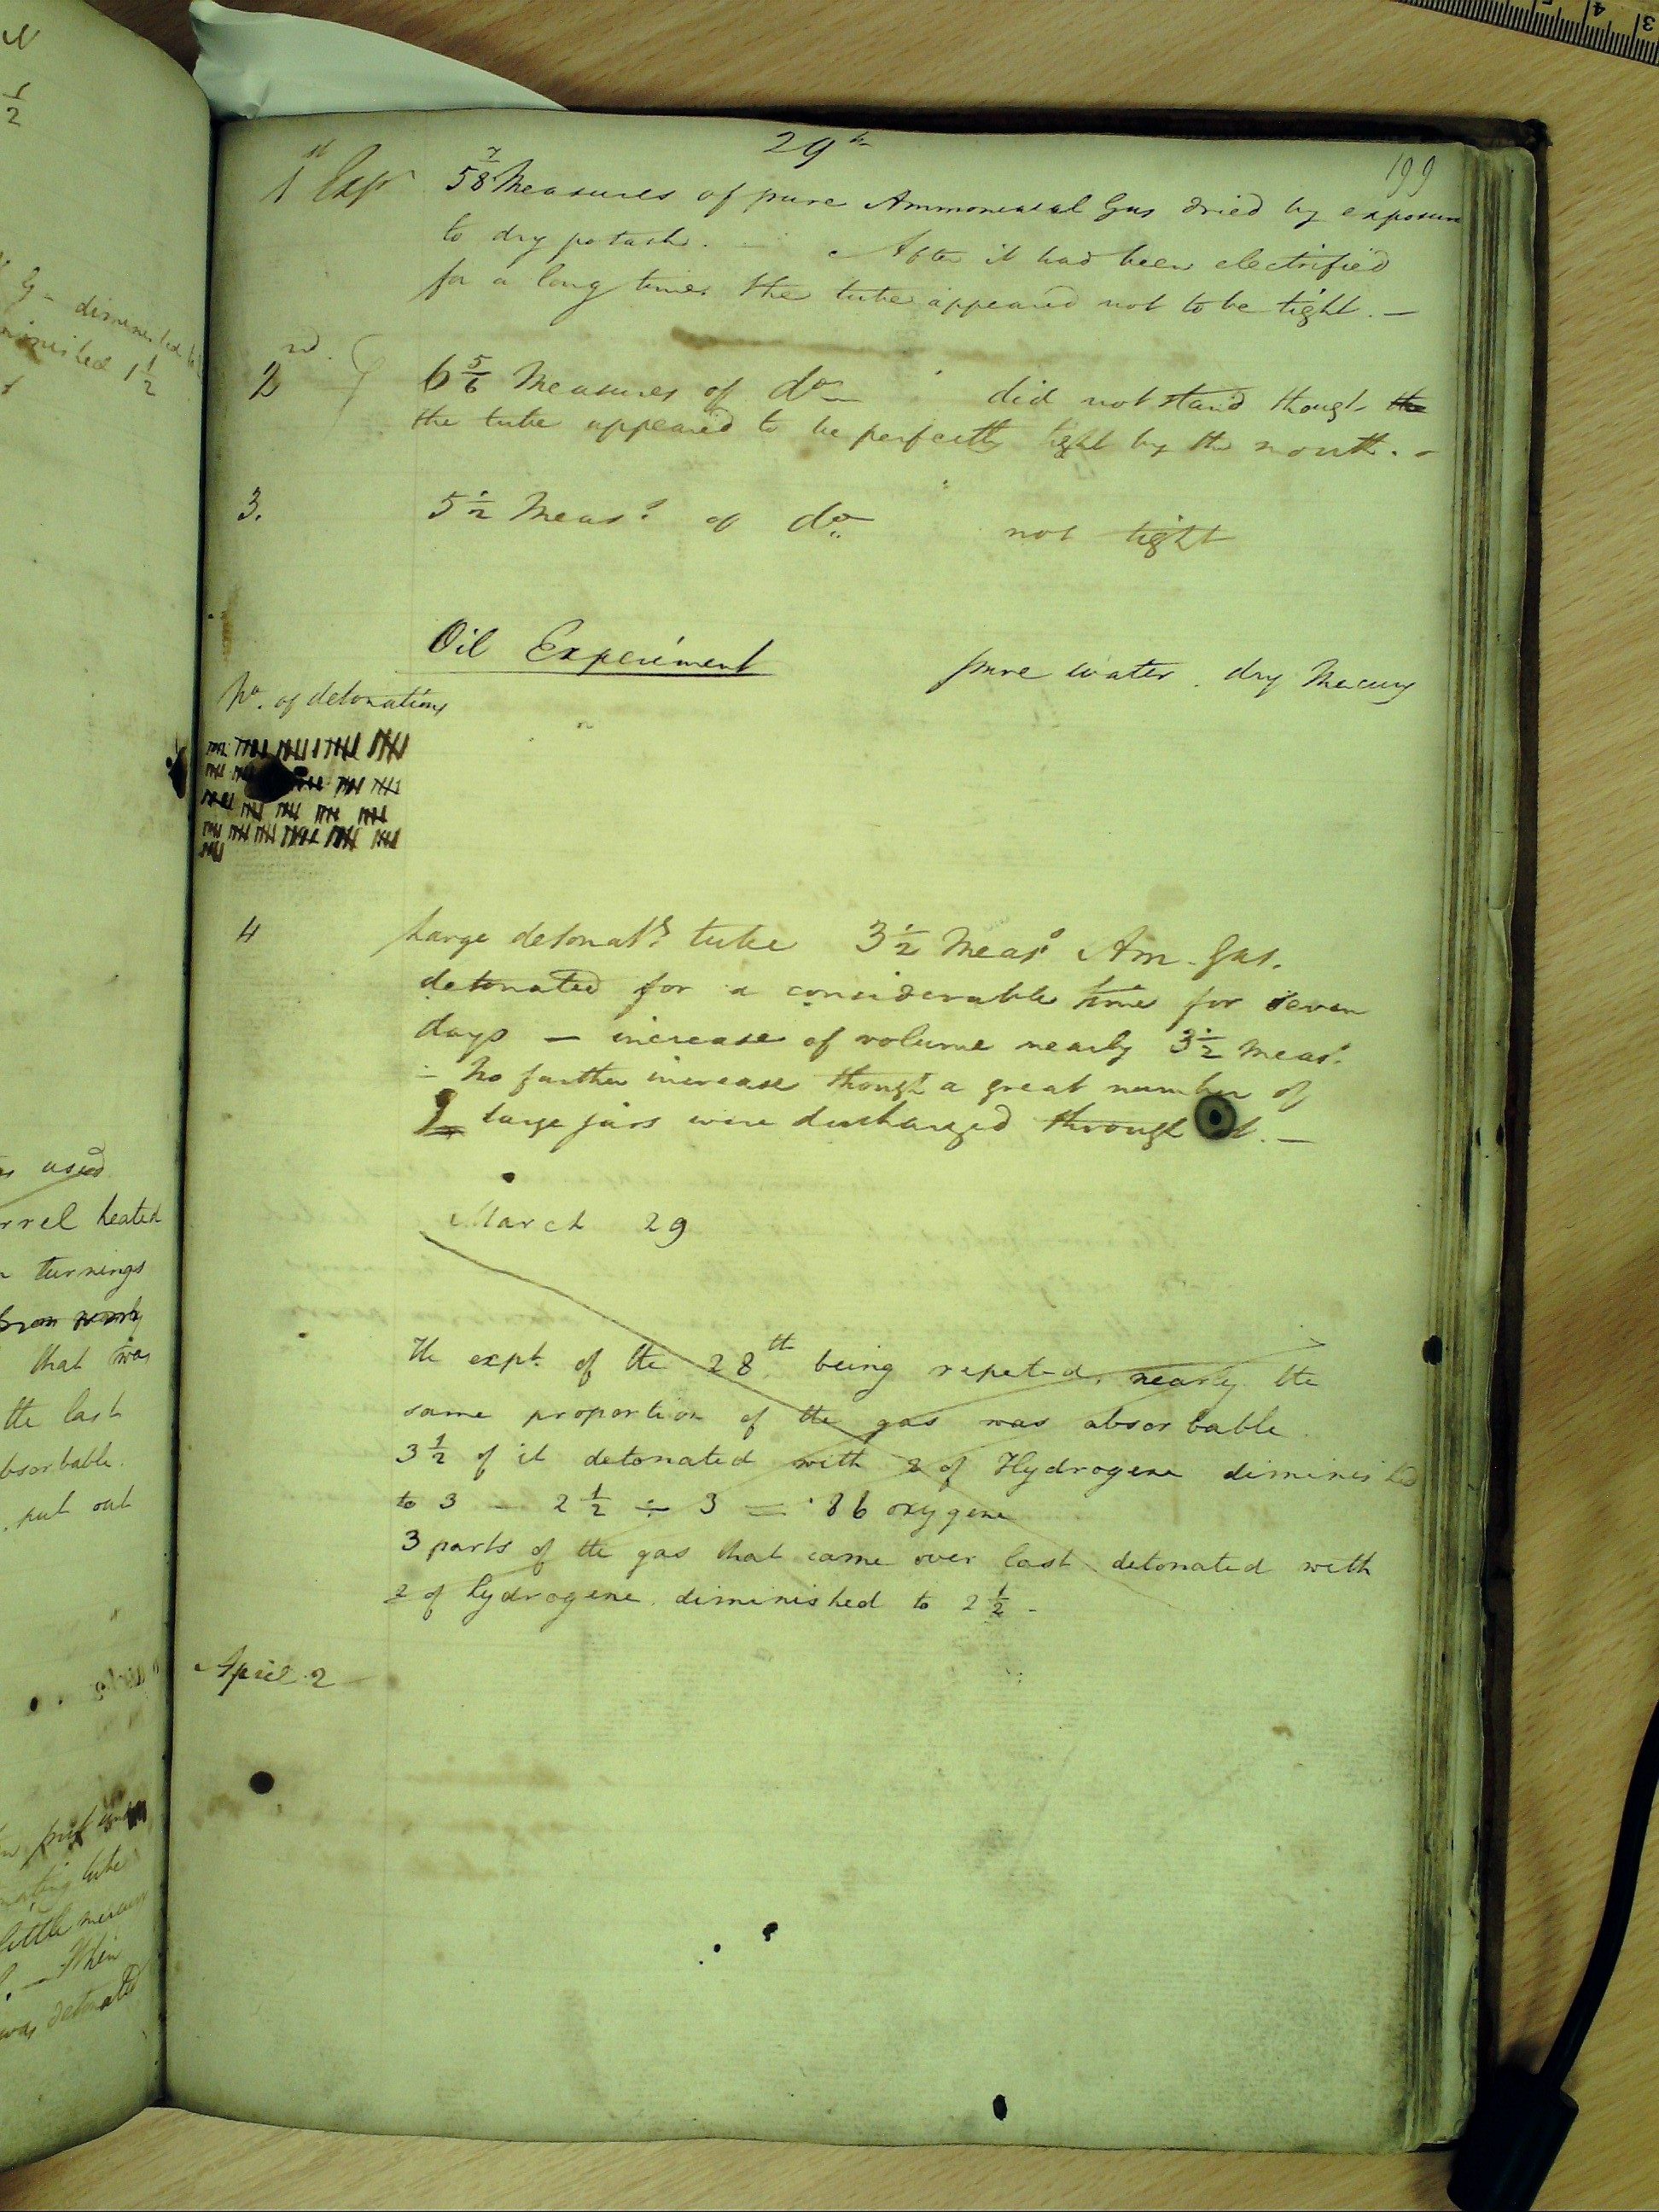 29th
199
1st Expt 5 7/8 Measures of pure Ammoniacal Gas dried by exposure
to dry potash. After it had been electrified
for a long time the tube appeared not to be tight. —
2nd. 6 5/6 Measures of do did not stand though the
the tube appeared to be perfectly tight by the mouth. -
3. 5 1/2 Meass of do not tight
Oil Experiment pure water. dry Mercury
No. of detonations
4 Large detonatg tube 3 1/2 Meas. Am. Gas.
detonated for a considerable time for seven
days — increase of volume nearly 3 1/2 meas.
- No further increase though a great number of
large jars were discharged through it. —
March 29
The expt. of the 28th being repeted, nearly the
same proportion of the gas was absorbable.
3 1/2 of it detonated with 2 of Hydrogene diminished
to 3 - 2 1/2 ÷ 3 = .86 oxygene
3 parts of the gas that came over last detonated with
2 of hydrogene diminished to 2 1/2 -
April 2
1/2
diminished to
diminished 1 1/2
used
heated
turnings
that was
the last
absorbable.
put out
tube
little mercury
When
was detonated